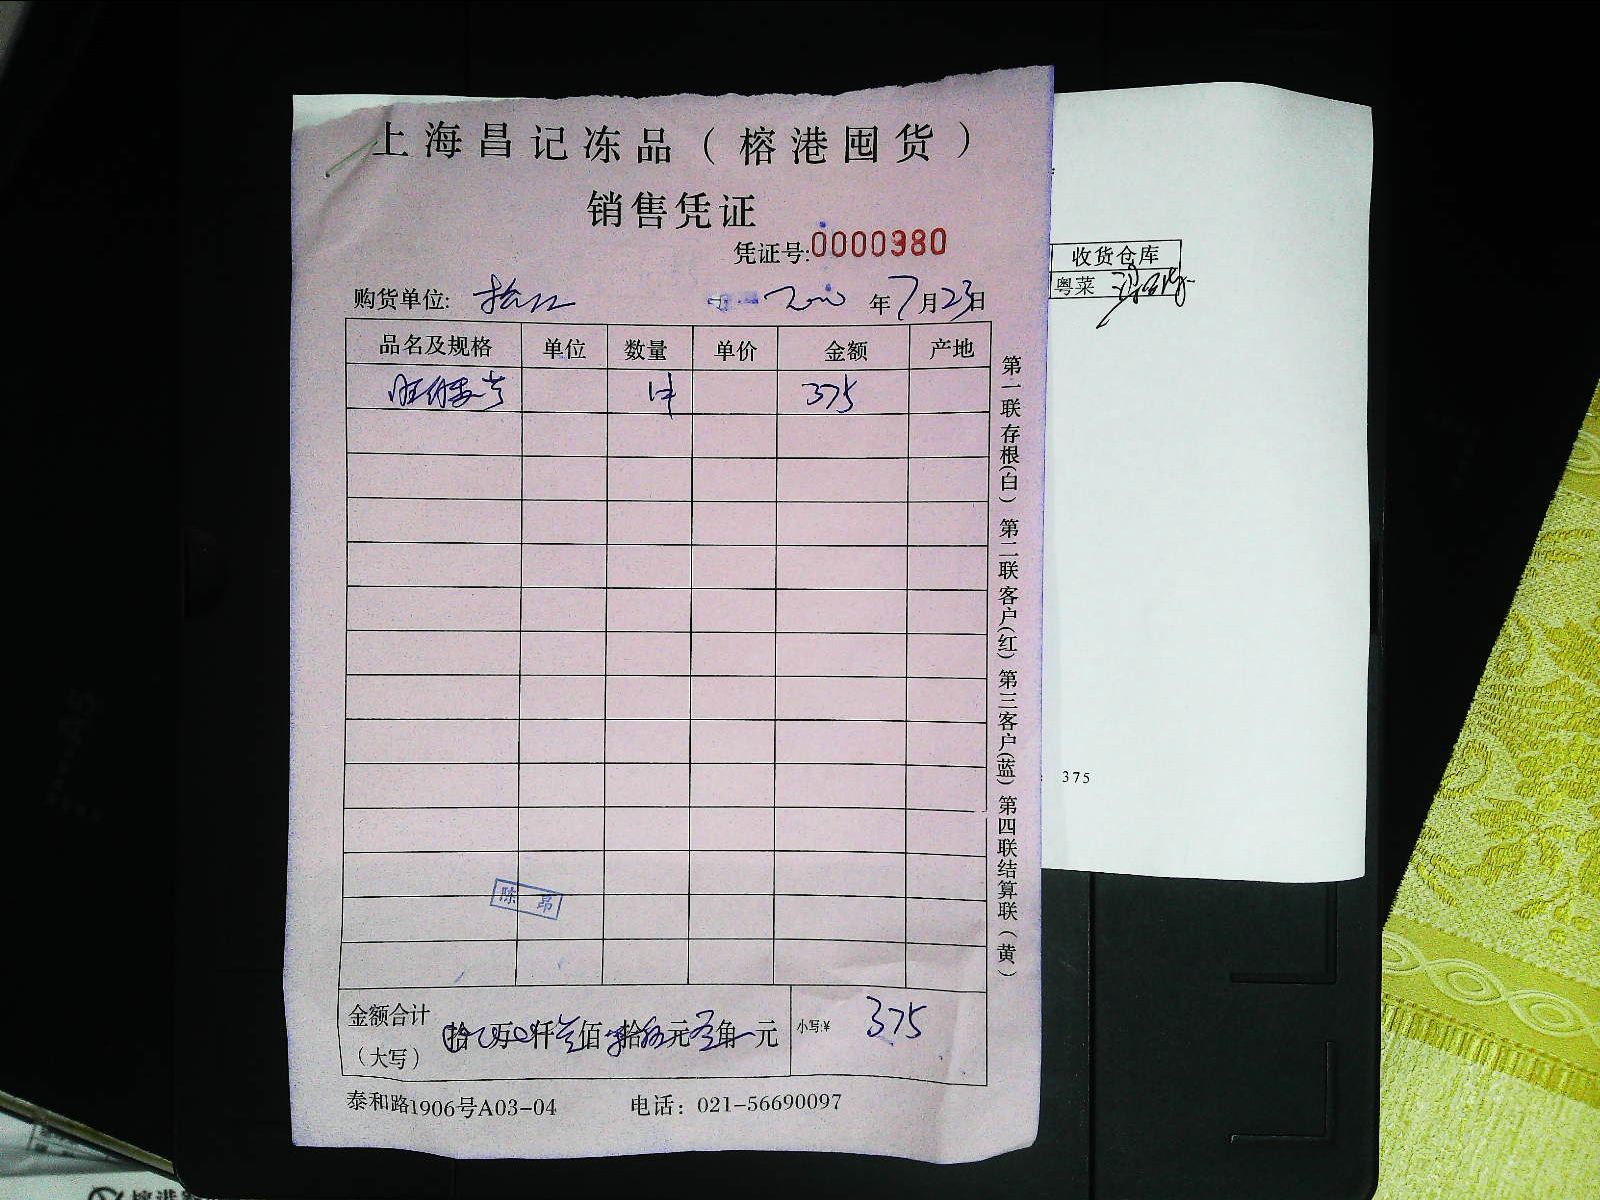 上海昌记冻品（榕港囤货）
销售凭证
凭证号:0000980
购货单位: 年7月23日
品名及规格 单位 数量 单价 金额 产地
1件 375
第一联存根(白) 第二联客户(红) 第三客户(蓝) 第四联结算联(黄)
陈昂
金额合计
(大写) 拾 万 仟 佰 拾 元 角 元 小写:¥ 375
泰和路1906号A03-04 电话：021-56690097
收货仓库
粤菜
375